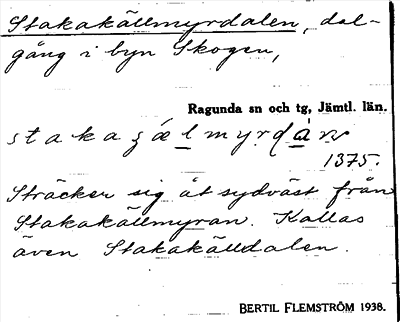 Stakakällmyrdalen, dal-
gång i byn Skogen,
Ragunda sn och tg, Jämtl. län.
1375.
Sträcker sig åt sydväst från
Stakakällmyran. Kallas
även Stakakälldalen.
BERTIL FLEMSTRÖM 1938.